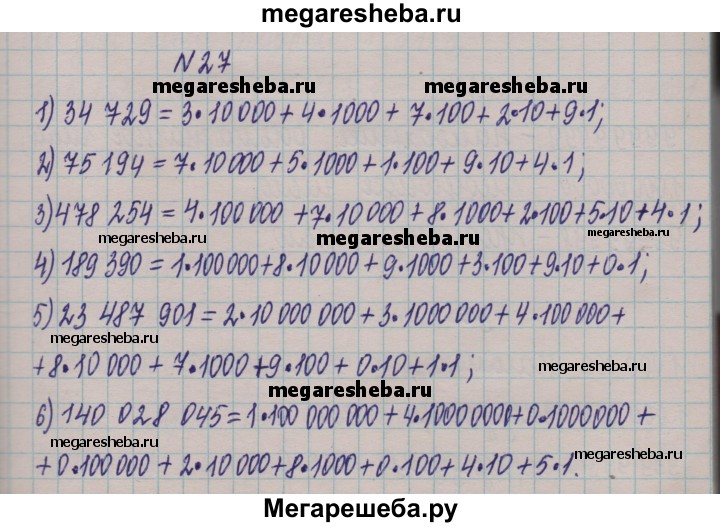 megaresheba.ru
N 27
megaresheba.ru megaresheba.ru
1) 34 729 = 3•10 000 + 4•1000 + 7•100 + 2•10 + 9•1;
2) 75 194 = 7•10 000 + 5•1000 + 1•100 + 9•10 + 4•1;
3) 478 254 = 4•100 000 + 7•10 000 + 8•1000 + 2•100 + 5•10 + 4•1;
megaresheba.ru megaresheba.ru megaresheba.ru
4) 189 390 = 1•100 000 + 8•10 000 + 9•1000 + 3•100 + 9•10 + 0•1;
5) 23 487 901 = 2•10 000 000 + 3•1000 000 + 4•100 000 +
megaresheba.ru
+ 8•10 000 + 7•1000 + 9•100 + 0•10 + 1•1;
megaresheba.ru
megaresheba.ru
6) 140 028 045 = 1•100 000 000 + 4•10000000 + 0•1000000 +
megaresheba.ru
+ 0•100 000 + 2•10 000 + 8•1000 + 0•100 + 4•10 + 5•1.
megaresheba.ru
Мегарешеба.ру